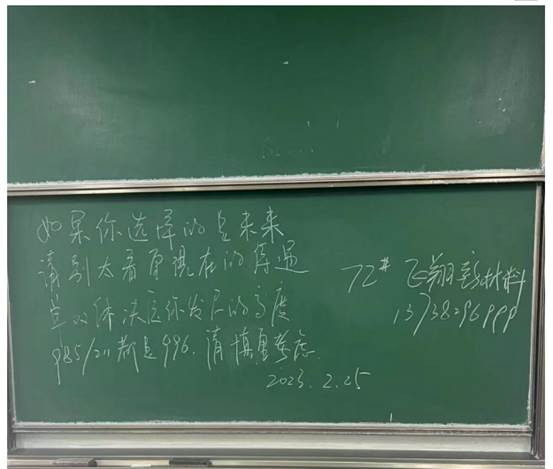 如果你选择的是未来
请别太看重现在的待遇
个体决定你发展的高度
985/211都是996.请慎重考虑
2023.2.25
72# 飞翔新材料
13738296999